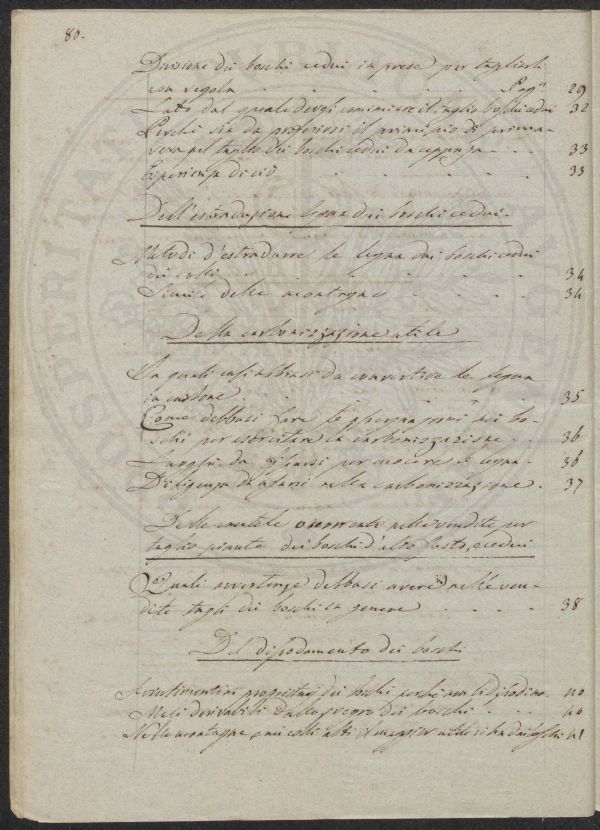 80.
Divisione dei boschi cedui in prese per tagliarli
con regola . . . . . . Pag.ª 29
Lato dal quale devesi cominciare il taglio boschi cedui 32
Perchè sia da preferirsi il principio di prima-
vera pel taglio dei boschi cedui da ceppaja . . 33
Esperienza di ciò . . . . . 33
Dell'estraduzione legna dai boschi cedui.
Metodi d'estradurre le legna dai boschi cedui
dei colli . . . . . . 34
Simili delle montagne . . . . 34
Della carbonizzazione utile
In quali casi abbiasi da convertire le legna
in carbone . . . . . . 35
Come debbasi fare le piazze nei bo-
schi per esercitare la carbonizzazione . . 36
Luoghi da per cuocere le legna . 36
Diligenza da usarsi nella carbonizzazione . 37
Delle cautele occorrenti nelle vendite per
taglio piante dei boschi d'alto fusto, e cedui
Quali avvertenze debbasi avere nelle ven-
dite tagli dei boschi in genere . . . . 38
Del disodamento dei boschi
Avvertimenti ai proprietarj dei boschi perchè non li disodino . 40
Mali derivabili dallo svegro dei boschi . . . 40
Nelle montagne, e nei colli alti il maggior utile si ha dai boschi 41
PROSPERITA